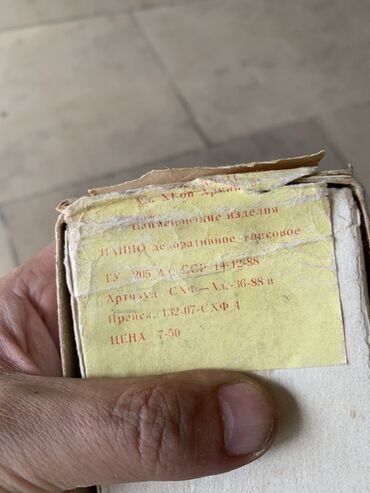 ул. XI-ой Армии
Наименование изделия
ПАННО декоративное гипсовое
ТУ 205 Аз. ССР 14-12-88
Артикул СХФ—Аз.-36-88 в
Прейск. 132-07-СХФ 4
ЦЕНА 7-50